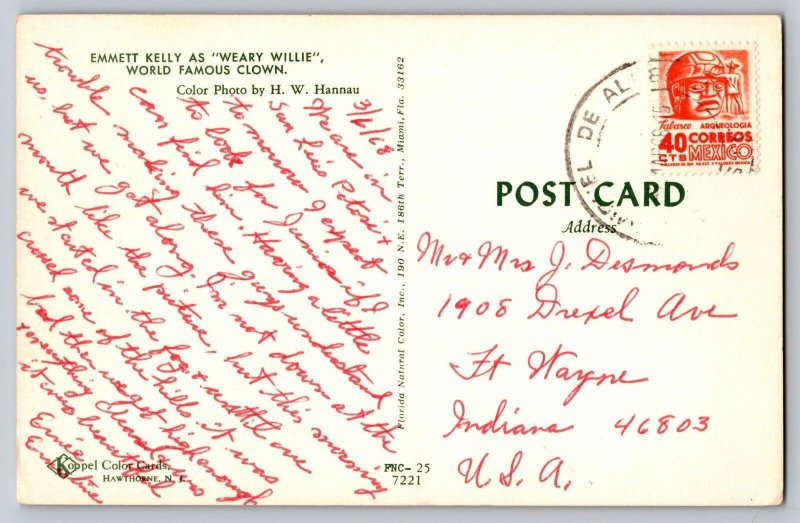 EMMETT KELLY AS "WEARY WILLIE",
WORLD FAMOUS CLOWN.
Color Photo by H. W. Hannau
3/6/68
We are in
San Luis Potosi &
tomorrow I expect
to look for Junior if I
can find him. Having a little
trouble making these guys understand
us, but we get along. I'm not down at the
mouth like the picture, but this morning
we started in the fog & until we
crossed some of the hills it was
bad then we got high enough
& everything cleared & was
it was beautiful
Ernie
Emeline
Koppel Color Cards,
HAWTHORNE, N. J.
Florida Natural Color, Inc., 190 N.E. 186th Terr., Miami, Fla. 33162
FNC- 25
7221
EL DE AL
Tabasco ARQUEOLOGIA
40 CORREOS
CTS MEXICO
POST CARD
Address
Mr & Mrs J. Desmonds
1908 Drexel Ave
Ft Wayne
Indiana 46803
U.S.A.